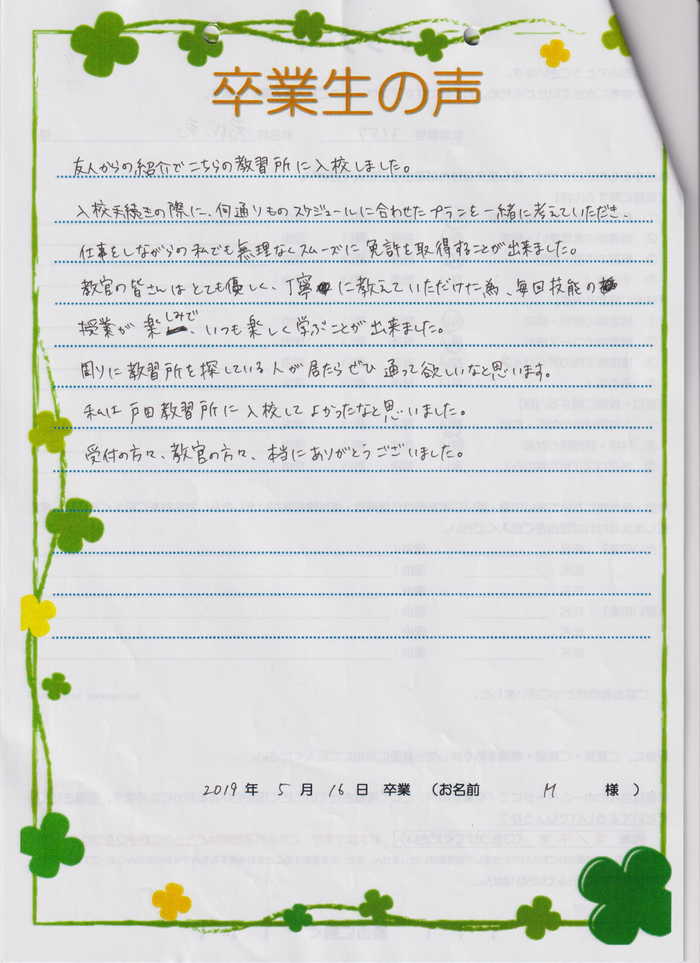 卒業生の声
友人からの紹介でこちらの教習所に入校しました。
入校手続きの際に、何通りものスケジュールに合わせたプランを一緒に考えていただき、
仕事をしながらの私でも無理なくスムーズに免許を取得することが出来ました。
教官の皆さんはとても優しく、丁寧に教えていただけた為、毎回技能の
授業が楽しみで、いつも楽しく学ぶことが出来ました。
周りに教習所を探している人が居たらぜひ通って欲しいなと思います。
私は戸田教習所に入校してよかったなと思いました。
受付の方々、教官の方々、本当にありがとうございました。
2019年 5月 16日 卒業 (お名前 M 様 )